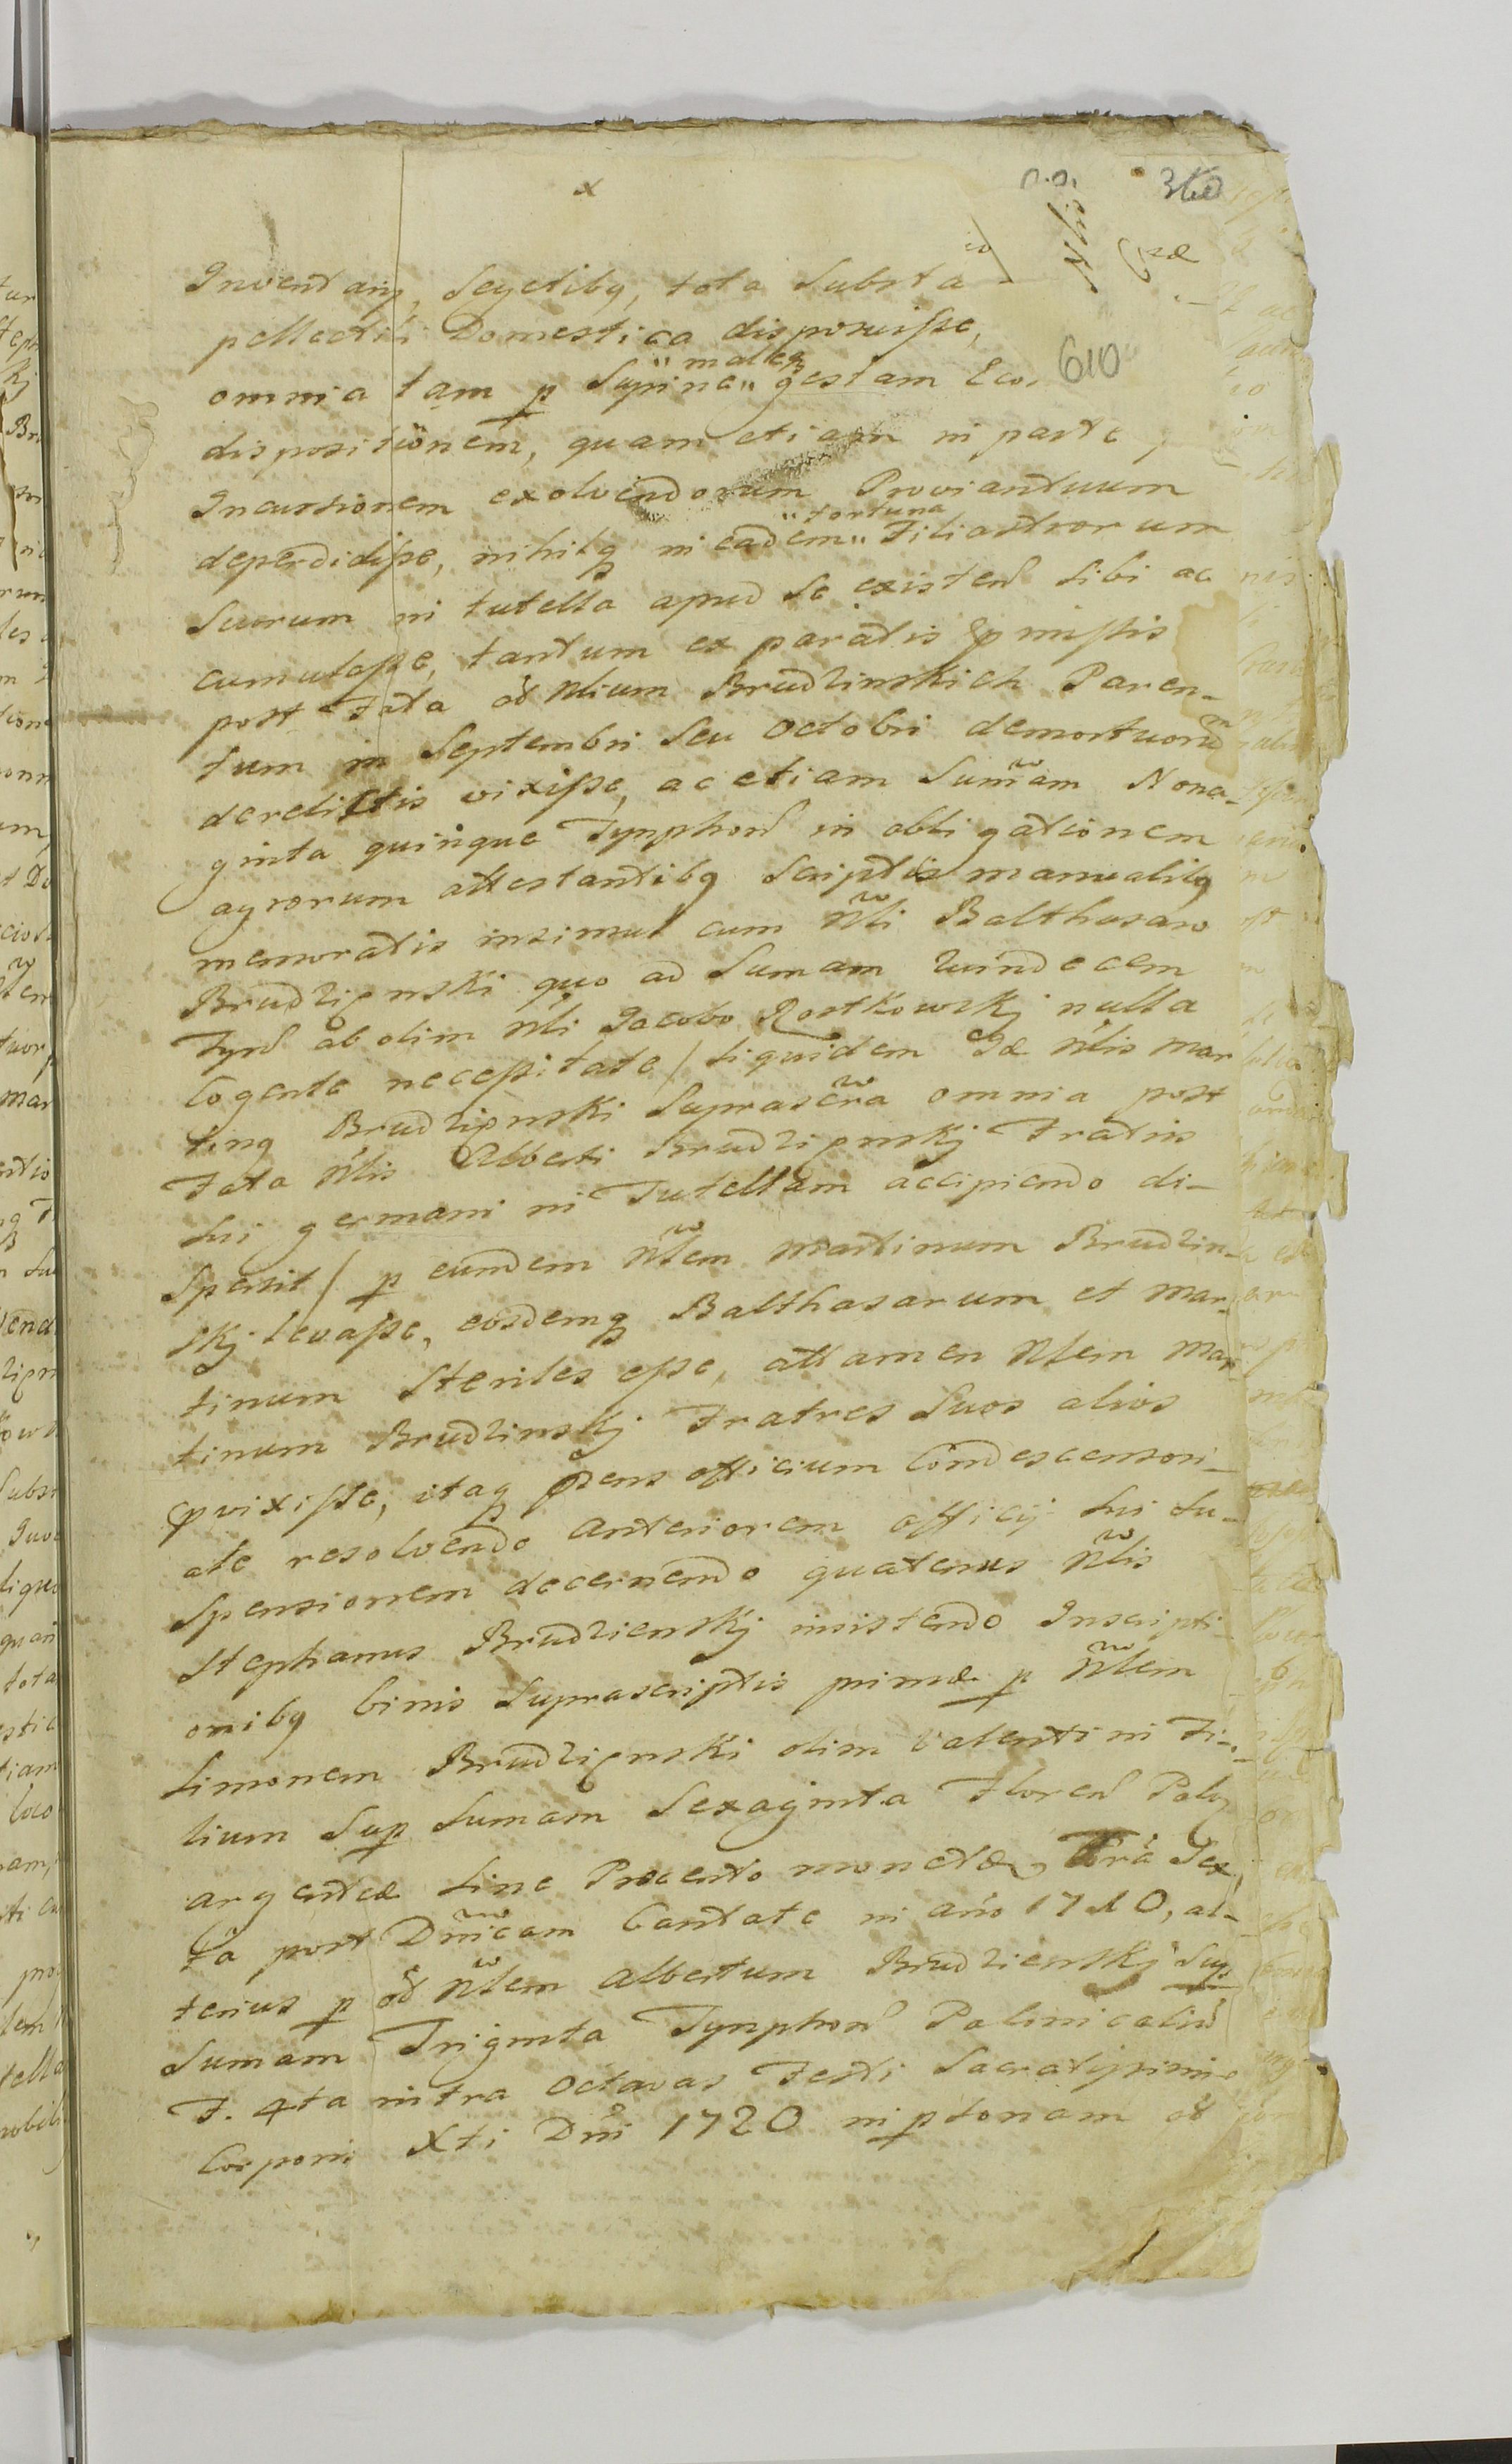 x
360
610
Inventarys, Segetibq, tota Substa
pellectili Domestica disposuisse,
omnia tam p Supine male q gestam Eco
dispositionem, quam etiam in parte
Incursionem exolvendorum Proviantuum
deperdidisse, nihilq in eadem „fortuna„ Filiastrorum
Suorum in tutella apud Se existen Sibi ac
cumulasse, tantum ex paratis & pmissis
post Fata Nlium Brudzinskich Paren-
tum in Septembri Seu Octobri demortuorum
derelictis vixisse, ac etiam Sumam Nona-
ginta quinque Tynphon in obligationem
agrorum attestantibq Scriptis manualibq
memoratis insimul cum Nli Balthasaro
Brudzięnski quo ad Sumam Undecem
Tyn ab olim Nli Jacobo Rostkowskj nulla
Cogente necessitate / Siquidem Idē Nlis Mar
tinq Brudzięnski Suprascra omnia post
Fata Nlis Alberti Brudzięnskj Fratris
Sui germani in Tutellam accipiendo di-
Sperit / p eundem Nlem Martinum Brudzin-
skj levasse, eosdemq Balthasarum et Mar-
tinum Steriles esse, attamen Nlem Mar
tinum Brudzinskj Fratres Suos alios
pvixisse, itaq pens officium Condescensori-
ale resolvendo anteriorem officij Sui Su-
Spensionem decernendo quatenus Nlis
Stephanus Brudzienskj insistendo Inscripti-
onibq binis Suprascriptis primæ p Nlem
Simonem Brudzięnski olim Valentini Fi-
lium Sup Sumam Sexaginta Floren Polq
argenteæ Sine Procento monetæ, Fra Sex
ta post Dnicam Cantate in año 1710, al-
terius p Nlem Albertum Brudzienskj Sup
Sumam Triginta Tynphon Palinicaliu
F. 4ta intra Octavas Festi Sacratissimi
Corporis Xti Dni 1720 in psonam